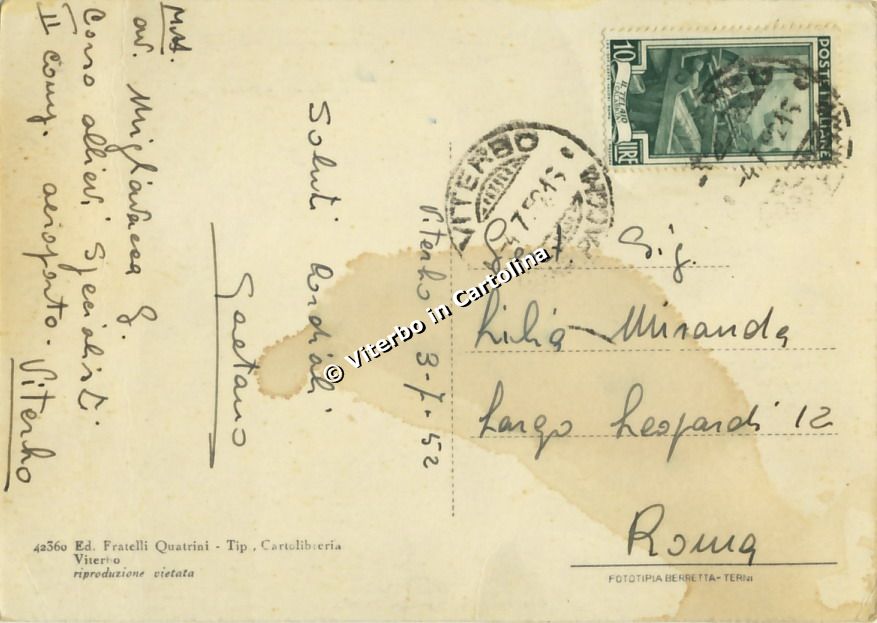 Mitt.
av. Migliavacca G.
Corso allievi Specialisti.
II comp. aeroporto - Viterbo
Saluti Cordiali
Gaetano
Viterbo 3-7-52
© Viterbo in Cartolina
VITERBO
POSTE ITALIANE
10
LIRE
Sig.
Lilia Miranda
Largo Leopardi 12
Roma
42360 Ed. Fratelli Quatrini - Tip. Cartolibreria
Viterbo
riproduzione vietata
FOTOTIPIA BERRETTA - TERNI